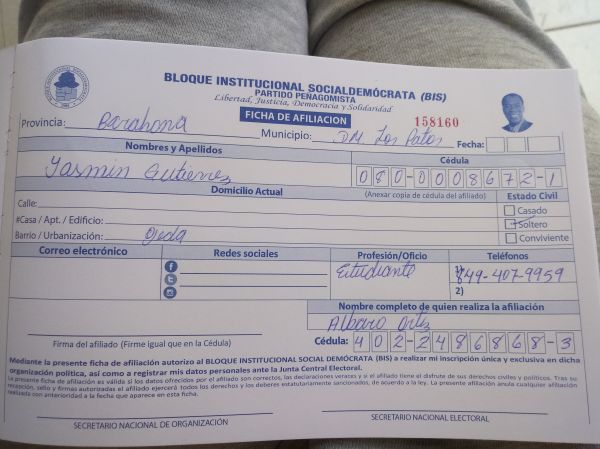 BLOQUE INSTITUCIONAL SOCIALDEMÓCRATA (BIS)
PARTIDO PEÑAGOMISTA
Libertad, Justicia, Democracia y Solidaridad
FICHA DE AFILIACION
158160
Provincia: Barahona Municipio: DM Los Patos Fecha:
Nombres y Apellidos Cédula
Yasmin Gutierrez 080-0008672-1
Domicilio Actual (Anexar copia de cédula del afiliado) Estado Civil
Calle: Casado
#Casa / Apt. / Edificio: Soltero
Barrio / Urbanización: Ojeda Conviviente
Correo electrónico Redes sociales Profesión/Oficio Teléfonos
Estudiante 1) 849-407-9959
2)
Nombre completo de quien realiza la afiliación
Albaro Ortiz
Firma del afiliado (Firme igual que en la Cédula) Cédula: 402-2486868-3
Mediante la presente ficha de afiliación autorizo al BLOQUE INSTITUCIONAL SOCIAL DEMÓCRATA (BIS) a realizar mi inscripción única y exclusiva en dicha
organización política, así como a registrar mis datos personales ante la Junta Central Electoral.
La presente ficha de afiliación es válida si los datos ofrecidos por el afiliado son correctos, las declaraciones veraces y si el afiliado tiene el disfrute de sus derechos civiles y políticos. Tras su
recepción, sello y firmas autorizadas el afiliado ejercerá todos los derechos y los deberes estatutariamente sancionados, de acuerdo a la ley. La presente afiliación anula cualquier afiliación
realizada con anterioridad a la fecha que aparece en esta ficha.
SECRETARIO NACIONAL DE ORGANIZACIÓN SECRETARIO NACIONAL ELECTORAL